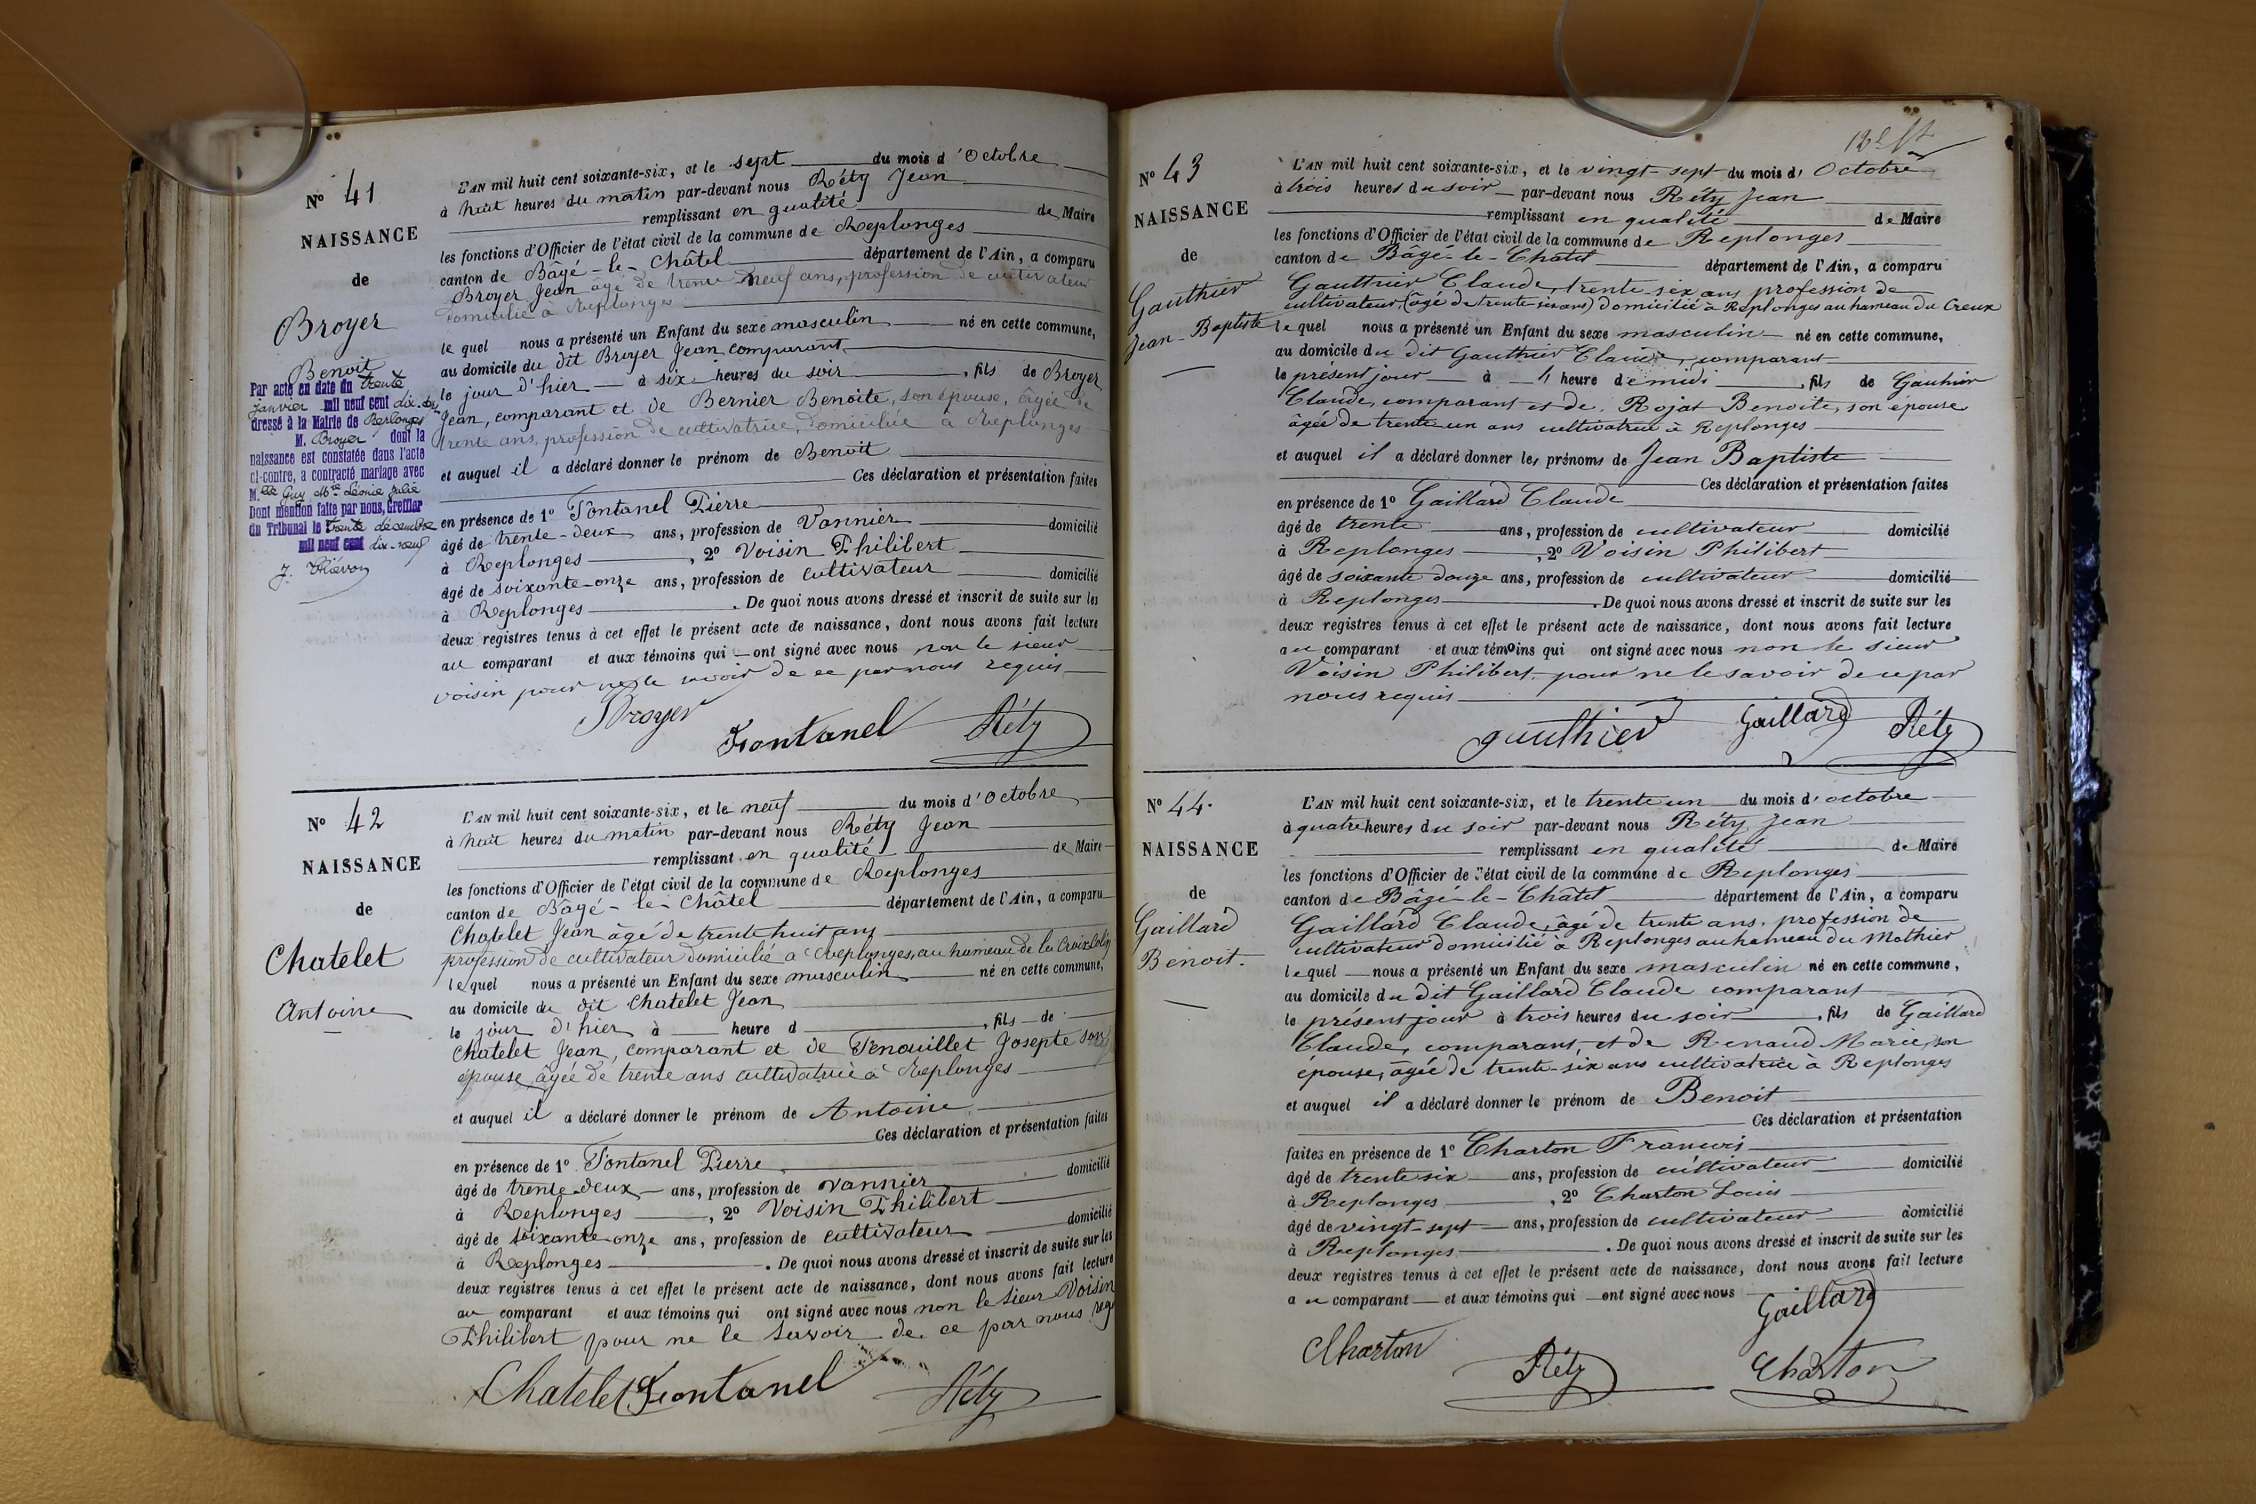 N° 41
NAISSANCE
de
Broyer
Benoit
Par acte en date du trente
janvier mil neuf cent dix-
dressé à la Mairie de Replonges
M. Broyer dont la
naissance est constatée dans l'acte
ci-contre, a contracté mariage avec
M.elle Guy Mie Léonie Julie
Dont mention faite par nous, Greffier
du Tribunal le trente décembre
mil neuf cent dix-neuf
L'AN mil huit cent soixante-six, et le sept du mois d'Octobre
à huit heures du matin par-devant nous Réty Jean
remplissant en qualité de Maire
les fonctions d'Officier de l'état civil de la commune de Replonges
canton de Bâgé-le-Châtel département de l'Ain, a comparu
Broyer Jean âgé de trente neuf ans, profession de cultivateur
domicilié à Replonges
le quel nous a présenté un Enfant du sexe masculin né en cette commune,
au domicile du dit Broyer Jean comparant
le jour d'hier à six heures du soir, fils de Broyer
Jean, comparant et de Bernier Benoite, son épouse, âgée de
trente ans, profession de cultivatrice, domiciliée à Replonges
et auquel il a déclaré donner le prénom de Benoit
Ces déclaration et présentation faites
en présence de 1° Fontanel Pierre
âgé de trente-deux ans, profession de Vannier domicilié
à Replonges, 2° Voisin Philibert
âgé de soixante-onze ans, profession de cultivateur domicilié
à Replonges. De quoi nous avons dressé et inscrit de suite sur les
deux registres tenus à cet effet le présent acte de naissance, dont nous avons fait lecture
au comparant et aux témoins qui ont signé avec nous non le sieur
voisin pour ne le savoir de ce par nous requis
Broyer
Fontanel Réty
N° 42
NAISSANCE
de
Chatelet
Antoine
L'AN mil huit cent soixante-six, et le neuf du mois d'Octobre
à huit heures du matin par-devant nous Réty Jean
remplissant en qualité de Maire
les fonctions d'Officier de l'état civil de la commune de Replonges
canton de Bâgé-le-Châtel département de l'Ain, a comparu
Chatelet Jean âgé de trente huit ans
profession de cultivateur domicilié à Replonges, au hameau de la Croix Colin
le quel nous a présenté un Enfant du sexe masculin né en cette commune,
au domicile du dit Chatelet Jean
le jour d'hier à heure d , fils de
Chatelet Jean, comparant et de Fenouillet Josepte son
épouse, âgée de trente ans cultivatrice à Replonges
et auquel il a déclaré donner le prénom de Antoine
Ces déclaration et présentation faites
en présence de 1° Fontanel Pierre
âgé de trente-deux ans, profession de vannier domicilié
à Replonges, 2° Voisin Philibert
âgé de soixante-onze ans, profession de cultivateur domicilié
à Replonges. De quoi nous avons dressé et inscrit de suite sur les
deux registres tenus à cet effet le présent acte de naissance, dont nous avons fait lecture
au comparant et aux témoins qui ont signé avec nous non le sieur Voisin
Philibert pour ne le savoir de ce par nous req
Chatelet Fontanel Réty
N° 43
NAISSANCE
de
Gauthier
Jean-Baptiste
L'AN mil huit cent soixante-six, et le vingt-sept du mois d'Octobre
à trois heures du soir par-devant nous Réty Jean
remplissant en qualité de Maire
les fonctions d'Officier de l'état civil de la commune de Replonges
canton de Bâgé-le-Châtel département de l'Ain, a comparu
Gauthier Claude, trente-six ans profession de
cultivateur, (âgé de trente-six ans) domicilié à Replonges au hameau du Creux
le quel nous a présenté un Enfant du sexe masculin né en cette commune,
au domicile du dit Gauthier Claude, comparant
le présent jour à 1 heure de midi, fils de Gauthier
Claude, comparant et de Rojat Benoite, son épouse
âgée de trente-un ans cultivatrice à Replonges
et auquel il a déclaré donner les prénoms de Jean Baptiste
Ces déclaration et présentation faites
en présence de 1° Gaillard Claude
âgé de trente ans, profession de cultivateur domicilié
à Replonges, 2° Voisin Philibert
âgé de soixante douze ans, profession de cultivateur domicilié
à Replonges. De quoi nous avons dressé et inscrit de suite sur les
deux registres tenus à cet effet le présent acte de naissance, dont nous avons fait lecture
au comparant et aux témoins qui ont signé avec nous non le sieur
Voisin Philibert pour ne le savoir de ce par
nous requis
gauthier Gaillard Réty
N° 44.
NAISSANCE
de
Gaillard
Benoit.
L'AN mil huit cent soixante-six, et le trente un du mois d'octobre
à quatre heures du soir par-devant nous Réty Jean
remplissant en qualité de Maire
les fonctions d'Officier de l'état civil de la commune de Replonges
canton de Bâgé-le-Châtel département de l'Ain, a comparu
Gaillard Claude, âgé de trente ans, profession de
cultivateur domicilié à Replonges au hameau du Mathier
le quel nous a présenté un Enfant du sexe masculin né en cette commune,
au domicile du dit Gaillard Claude comparant
le présent jour à trois heures du soir, fils de Gaillard
Claude, comparant, et de Renaud Marie, son
épouse, âgée de trente-six ans cultivatrice à Replonges
et auquel il a déclaré donner le prénom de Benoit
Ces déclaration et présentation
faites en présence de 1° Charton Francois
âgé de trente six ans, profession de cultivateur domicilié
à Replonges, 2° Charton Louis
âgé de vingt-sept ans, profession de cultivateur domicilié
à Replonges. De quoi nous avons dressé et inscrit de suite sur les
deux registres tenus à cet effet le présent acte de naissance, dont nous avons fait lecture
au comparant et aux témoins qui ont signé avec nous
Gaillard
Charton Réty Charton